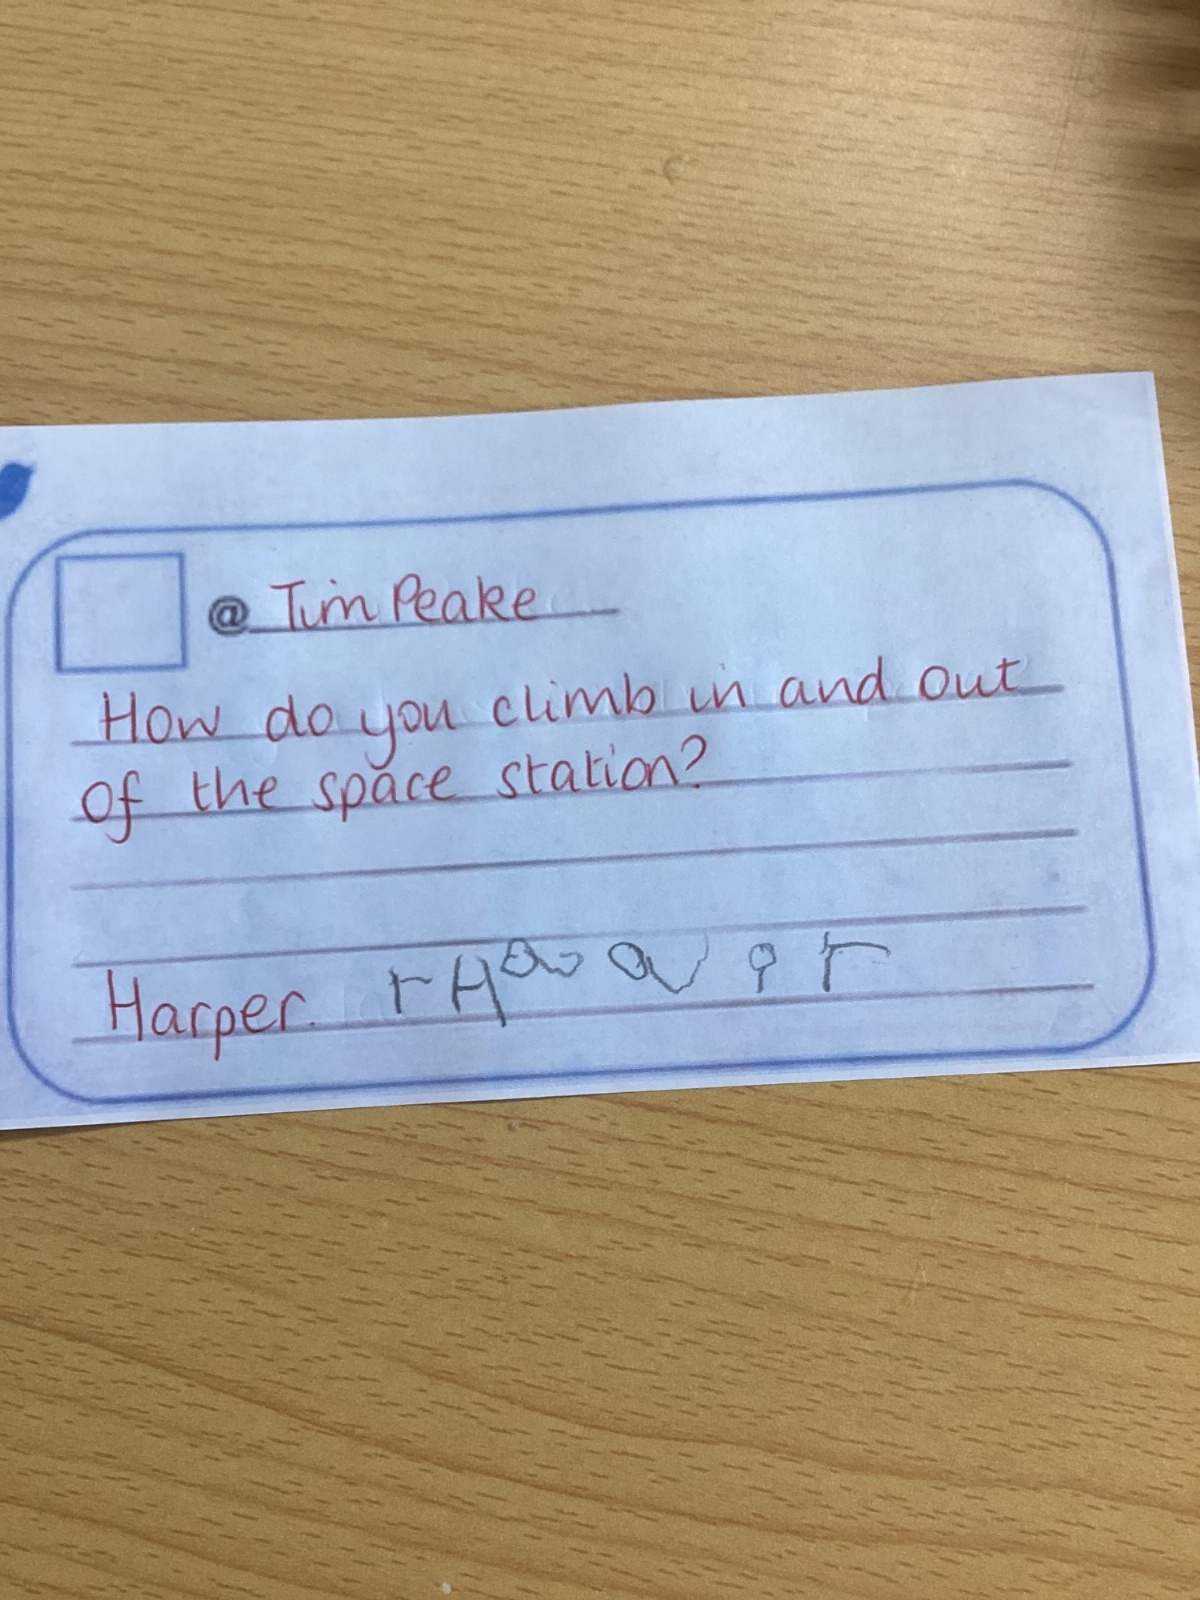 @ Tim Peake
How do you climb in and out
of the space station?
Harper.